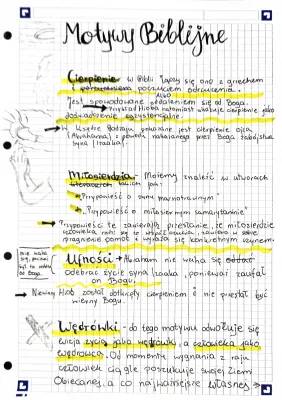 Motywy Biblijne
Cierpienie - w Biblii łączy się ono z grzechem
i poczuciem odrzucenia. Albo
jest spowodowane oddaleniem się od Boga.
Przykład Hioba natomiast ukazuje cierpienie jako
doświadczenie egzystencjalne.
→ W Księdze Rodzaju pokazane jest cierpienie ojca
(Abrahama) z powodu nakazanego przez Boga zabójstwa
syna (Izaaka).
Miłosierdzie - Możemy znaleźć w utworach
takich jak:
"Przypowieść o synu marnotrawnym"
"Przypowieść o miłosiernym samarytaninie"
→ Przypowieści te zawierają przesłanie, że miłosierdzie
człowieka rodzi się we współczuciu, zawiera w sobie
pragnienie pomocy i wyraża się konkretnym czynem.
Ufność → Abraham nie waha się oddać
odebrać życie syna Izaaka, ponieważ zaufał
on Bogu.
nie waha
się, ponieważ
był to
od Boga.
→ Niewinny Hiob został dotknięty cierpieniem i nie przestał być
wierny Bogu.
Wędrówki - do tego motywu odwołuje się
wizja życia jako wędrówki, a człowieka jako
wędrowca. Od momentu wygnania z raju
człowiek ciągle poszukuje swojej Ziemi
Obiecanej, a co najważniejsze własnej →